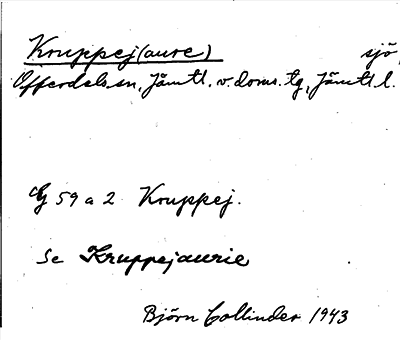 Kruppej(aure) sjö,
Offerdals sn, Jämtl. v. doms. tg, Jämtl l.
G 59 a 2 Kruppej.
Se Kruppejaurie
Björn Collinder 1943